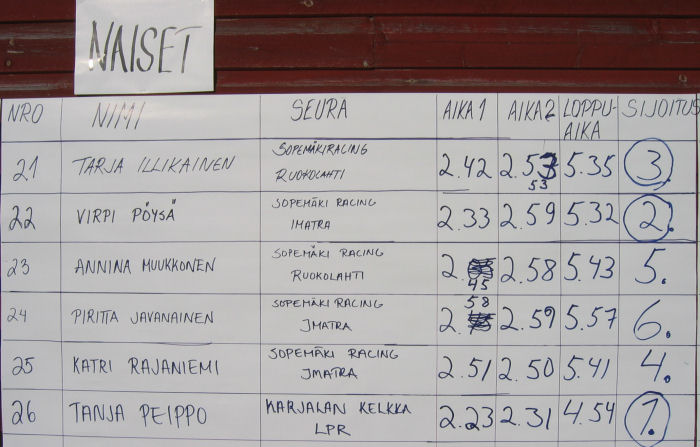 NAISET
NRO NIMI SEURA AIKA 1 AIKA 2 LOPPU- SIJOITUS
AIKA
21 TARJA ILLIKAINEN SOPEMÄKIRACING 2.42 2.53 5.35 3.
RUOKOLAHTI 53
22 VIRPI PÖYSÄ SOPEMÄKI RACING 2.33 2.59 5.32 2.
IMATRA
23 ANNINA MUUKKONEN SOPEMÄKI RACING 2. 2.58 5.43 5.
RUOKOLAHTI 45
24 PIRITTA JAVANAINEN SOPEMÄKI RACING 58
IMATRA 2. 2.59 5.57 6.
25 KATRI RAJANIEMI SOPEMÄKI RACING 2.51 2.50 5.41 4.
IMATRA
26 TANJA PEIPPO KARJALAN KELKKA 2.23 2.31 4.54 1.
LPR